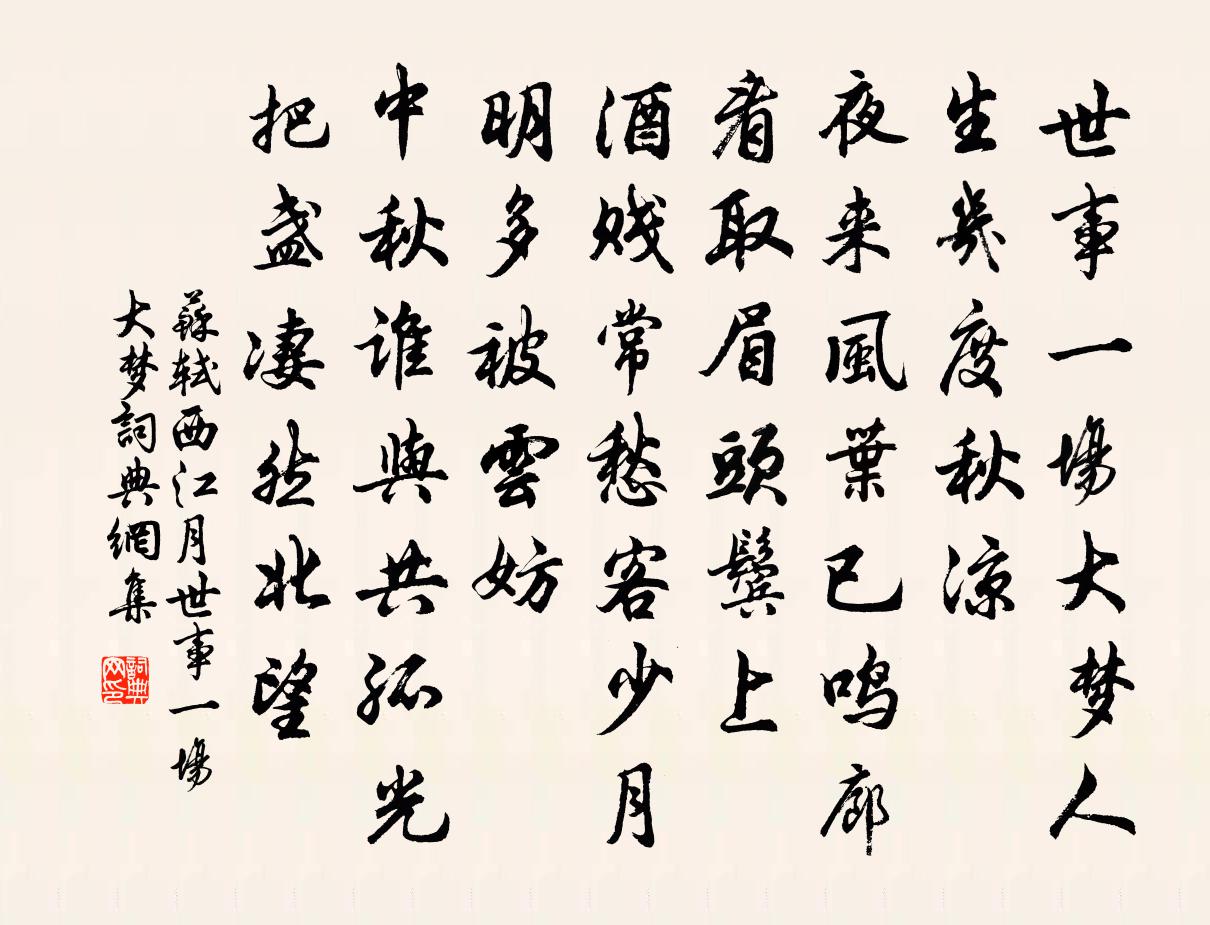 世事一場大梦人
生幾度秋涼
夜来風葉已鸣廊
看取眉頭鬓上
酒贱常愁客少月
明多被雲妨
中秋誰與共孤光
把盏凄然北望
蘇轼西江月世事一場
大梦詞典網集
詞典
网印